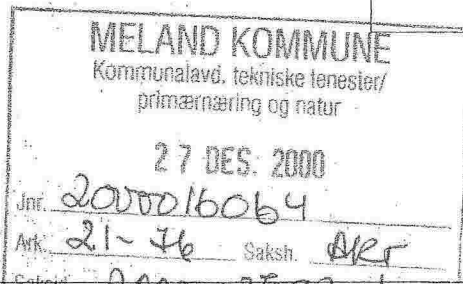 MELAND KOMMUNE
Kommunalavd. tekniske tenester/
primærnæring og natur
27 DES. 2000
Jnr. 2000016064
Ark. 21-76 Saksh. AKr